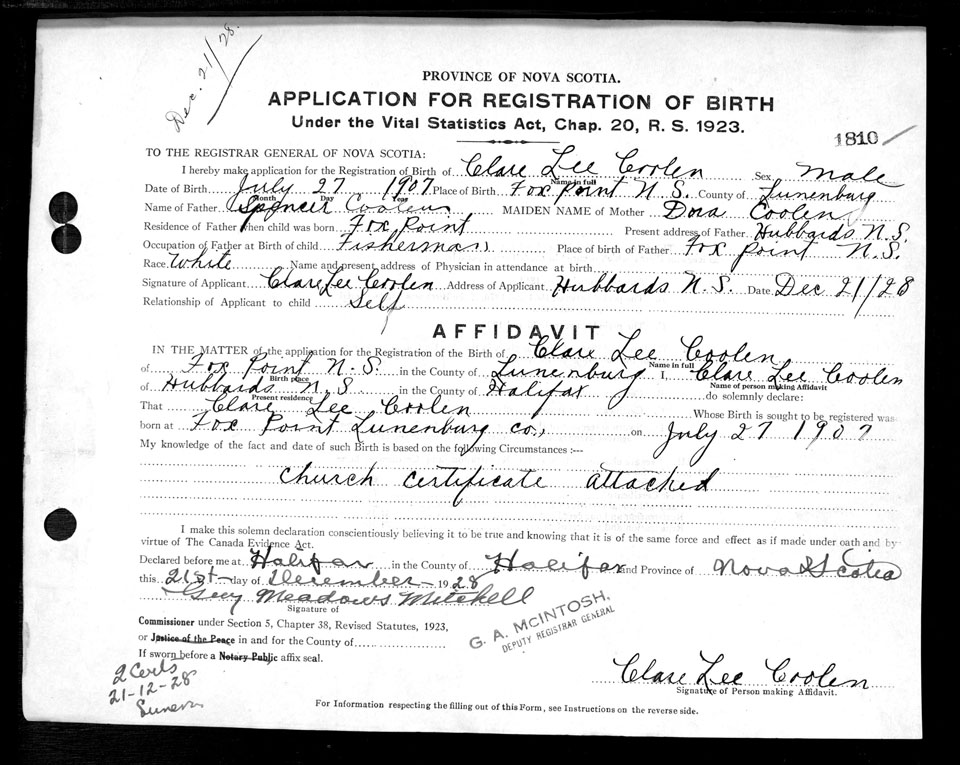 Dec. 21/28.
PROVINCE OF NOVA SCOTIA.
APPLICATION FOR REGISTRATION OF BIRTH
Under the Vital Statistics Act, Chap. 20, R. S. 1923.
1810
TO THE REGISTRAR GENERAL OF NOVA SCOTIA:
I hereby make application for the Registration of Birth of Clare Lee Coolen Sex Male
Name in full
Date of Birth July 27 1907 Place of Birth Fox Point N.S. County of Lunenburg
Month Day Year
Name of Father Spencer Coolen MAIDEN NAME of Mother Dora Coolen
Residence of Father when child was born Fox Point Present address of Father Hubbards N.S.
Occupation of Father at Birth of child Fisherman Place of birth of Father Fox Point N.S.
Race White Name and present address of Physician in attendance at birth
Signature of Applicant Clare Lee Coolen Address of Applicant Hubbards N.S. Date Dec 21/28
Relationship of Applicant to child Self
AFFIDAVIT
IN THE MATTER of the application for the Registration of the Birth of Clare Lee Coolen
Name in full
of Fox Point N.S. in the County of Lunenburg I, Clare Lee Coolen
Birth place Name of person making Affidavit
of Hubbards N.S in the County of Halifax do solemnly declare:
Present residence
That Clare Lee Coolen Whose Birth is sought to be registered was
born at Fox Point Lunenburg Co., on July 27 1907
My knowledge of the fact and date of such Birth is based on the following Circumstances :—
Church certificate attached
I make this solemn declaration conscientiously believing it to be true and knowing that it is of the same force and effect as if made under oath and by
virtue of The Canada Evidence Act.
Declared before me at Halifax in the County of Halifax and Province of Nova Scotia
this 21st day of December 1928
Guy Meadows Mitchell
Signature of
Commissioner under Section 5, Chapter 38, Revised Statutes, 1923,
or Justice of the Peace in and for the County of
If sworn before a Notary Public affix seal.
G. A. MCINTOSH,
DEPUTY REGISTRAR GENERAL
2 Certs
21-12-28
Clare Lee Coolen
Signature of Person making Affidavit.
For Information respecting the filling out of this Form, see Instructions on the reverse side.